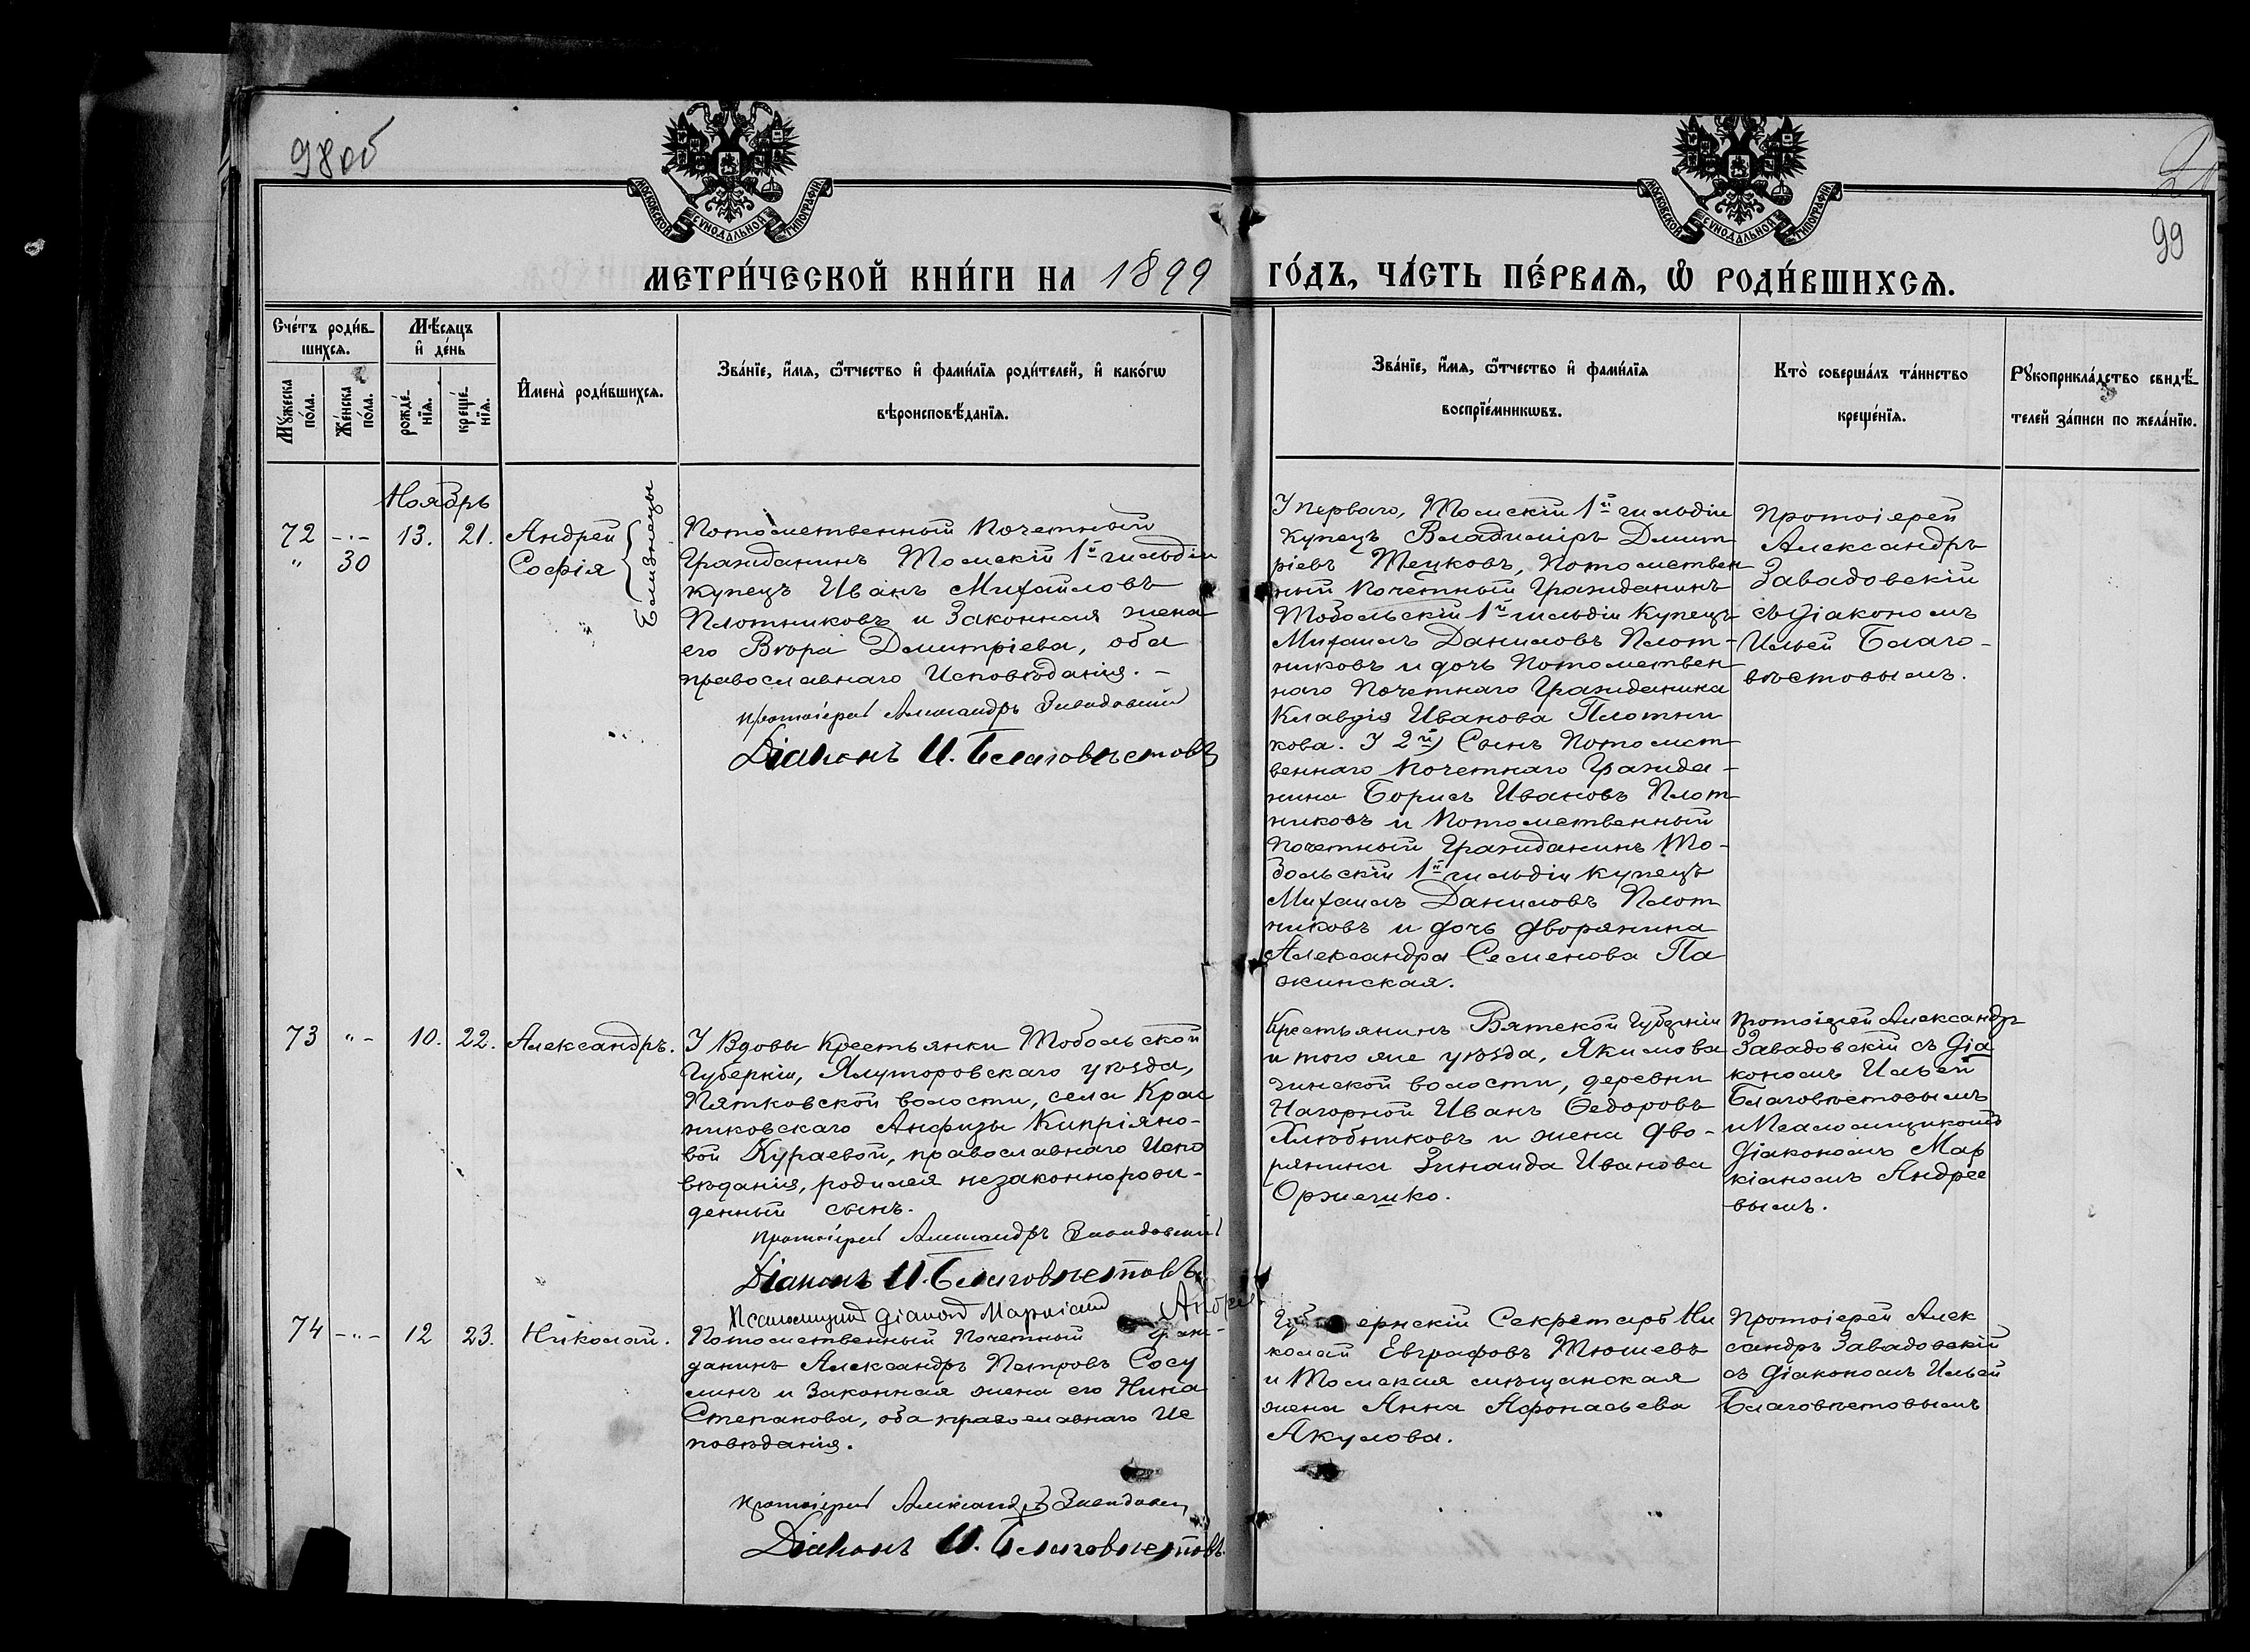 98об
99
МОСКОВСКОЙ СѴНОДАЛЬНОЙ ТИПОГРАФІИ
МОСКОВСКОЙ СѴНОДАЛЬНОЙ ТИПОГРАФІИ
МЕТРИ́ЧЕСКОЙ КНИ́ГИ НА 1899 ГО́ДЪ, ЧА́СТЬ ПЕ́РВАЯ, Ѿ РОДИ́ВШИХСЯ.
Счётъ роди́в-
шихся.
Мѣ́сяцъ
и де́нь
Мꙋ́жеска
по́ла.
Же́нска
по́ла.
рожде́-
нїя.
креще́-
нїя.
Имена̀ роди́вшихся.
Зва́нїе, и́мя, ѻ́тчество и фами́лїя роди́телей, и како́гѡ
вѣроисповѣ́данїя.
Зва́нїе, и́мя, ѻ́тчество и фами́лїя
воспрїе́мникѡвъ.
Кто̀ соверша́лъ та́инство
креще́нїя.
Рꙋкоприкла́дство свидѣ́-
телей за́писи по жела́нїю.
Ноябрь
72 -"- 13. 21. Андрей
" 30 Софія
Близнецы
Потомственный Почетный
Гражданинъ Томскій 1й гильдіи
купецъ Иванъ Михайловъ
Плотниковъ и законная жена
его Вѣра Димитріева, оба
православнаго Исповѣданія. –
Протоіерей Александръ Завадовскій
Діаконъ И. Благовѣстовъ
У перваго, Томскій 1й гильдіи
купецъ Владиміръ Дмит
ріевъ Тецковъ, Потомствен
ный Почетный Гражданинъ
Тобольскій 1й гильдіи Купецъ
Михаилъ Даниловъ Плот-
никовъ и дочь Потомствен
наго Почетнаго Гражданина
Клавдія Иванова Плотни
кова. У 2й) Сынъ Потомст
веннаго Почетнаго Гражда-
нина Борисъ Ивановъ Плот
никовъ и Потомственный
Почетный Гражданинъ То-
больскій 1й гильдіи купецъ
Михаилъ Даниловъ Плот
никовъ и дочь дворянина
Александра Семенова Па
жинская.
Протоіерей
Александръ
Завадовскій
съ Діакономъ
Ильей Благо-
вѣстовымъ.
73 "- 10. 22. Александръ.
У Вдовы Крестьянки Тобольской
Губерніи, Ялуторовскаго уѣзда,
Пятковской волости, села Крас
никовскаго Анфизы Кипріяно-
вой Кураевой, православнаго Испо
вѣданія, родился незаконнорож-
денный сынъ.
Протоіерей Александръ Завадовскій
Діаконъ И. Благовѣстовъ
Псаломщикъ Діаконъ Маркіанъ Андре
Крестьянинъ Вятской Губерніи
и того же уѣзда, Якимова
гинской волости, деревни
Нагорной Иванъ Ѳедоровъ
Хлѣбниковъ и жена дво-
рянина Зинаида Иванова
Оржешко.
Протоіерей Александръ
Завадовскій съ Діа
кономъ Ильей
Благовѣстовымъ
и Псаломщикомъ
Діакономъ Мар
кіаномъ Андрее
вымъ.
74 -"- 12 23. Николай.
Потомственный Почетный Граж-
данинъ Александръ Петровъ Сосу
линъ и законная жена его Нина
Степанова, оба православнаго Ис
повѣданія.
Протоіерей Александръ Завадовскій
Діаконъ И. Благовѣстовъ.
Губернскій Секретарь Ни
колай Евграфовъ Тюшевъ
и Томская мѣщанская
жена Анна Афонасьева
Акулова.
Протоіерей Алек
сандръ Завадовскій
съ Діакономъ Ильей
Благовѣстовымъ